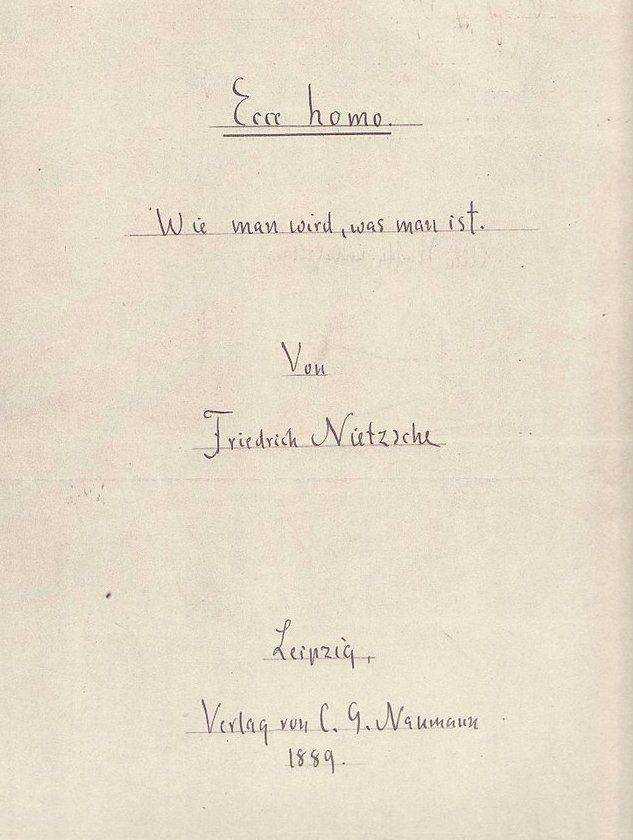 Ecce homo.
Wie man wird, was man ist.
Von
Friedrich Nietzsche
Leipzig,
Verlag von C. G. Naumann
1889.